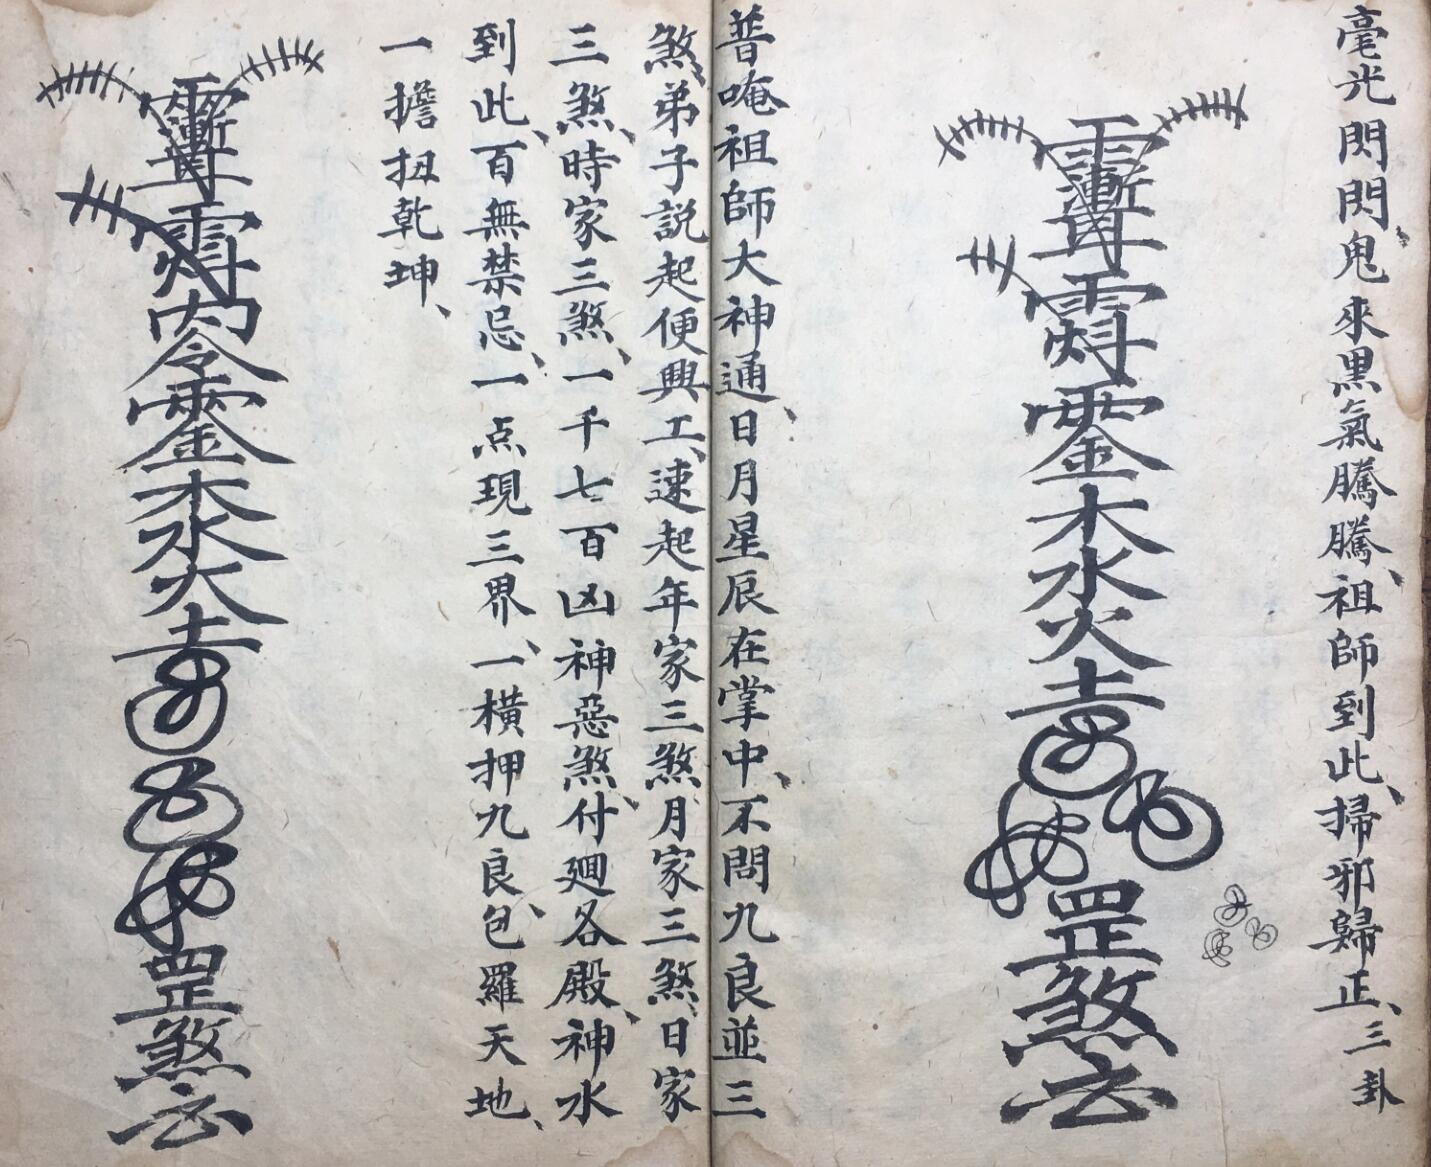 毫光閃閃、鬼來黑氣騰騰、祖師到此、掃邪歸正、三卦
木
水
火
土
罡
煞
普唵祖師大神通、日月星辰在掌中、不問九良並三
煞、弟子説起便興工、速起年家三煞月家三煞、日家
三煞、時家三煞、一千七百凶神惡煞、付廻各殿、神水
到此、百無禁忌、一点現三界、一橫押九良、包羅天地、
一擔扭乾坤、
木
水
火
土
罡
煞